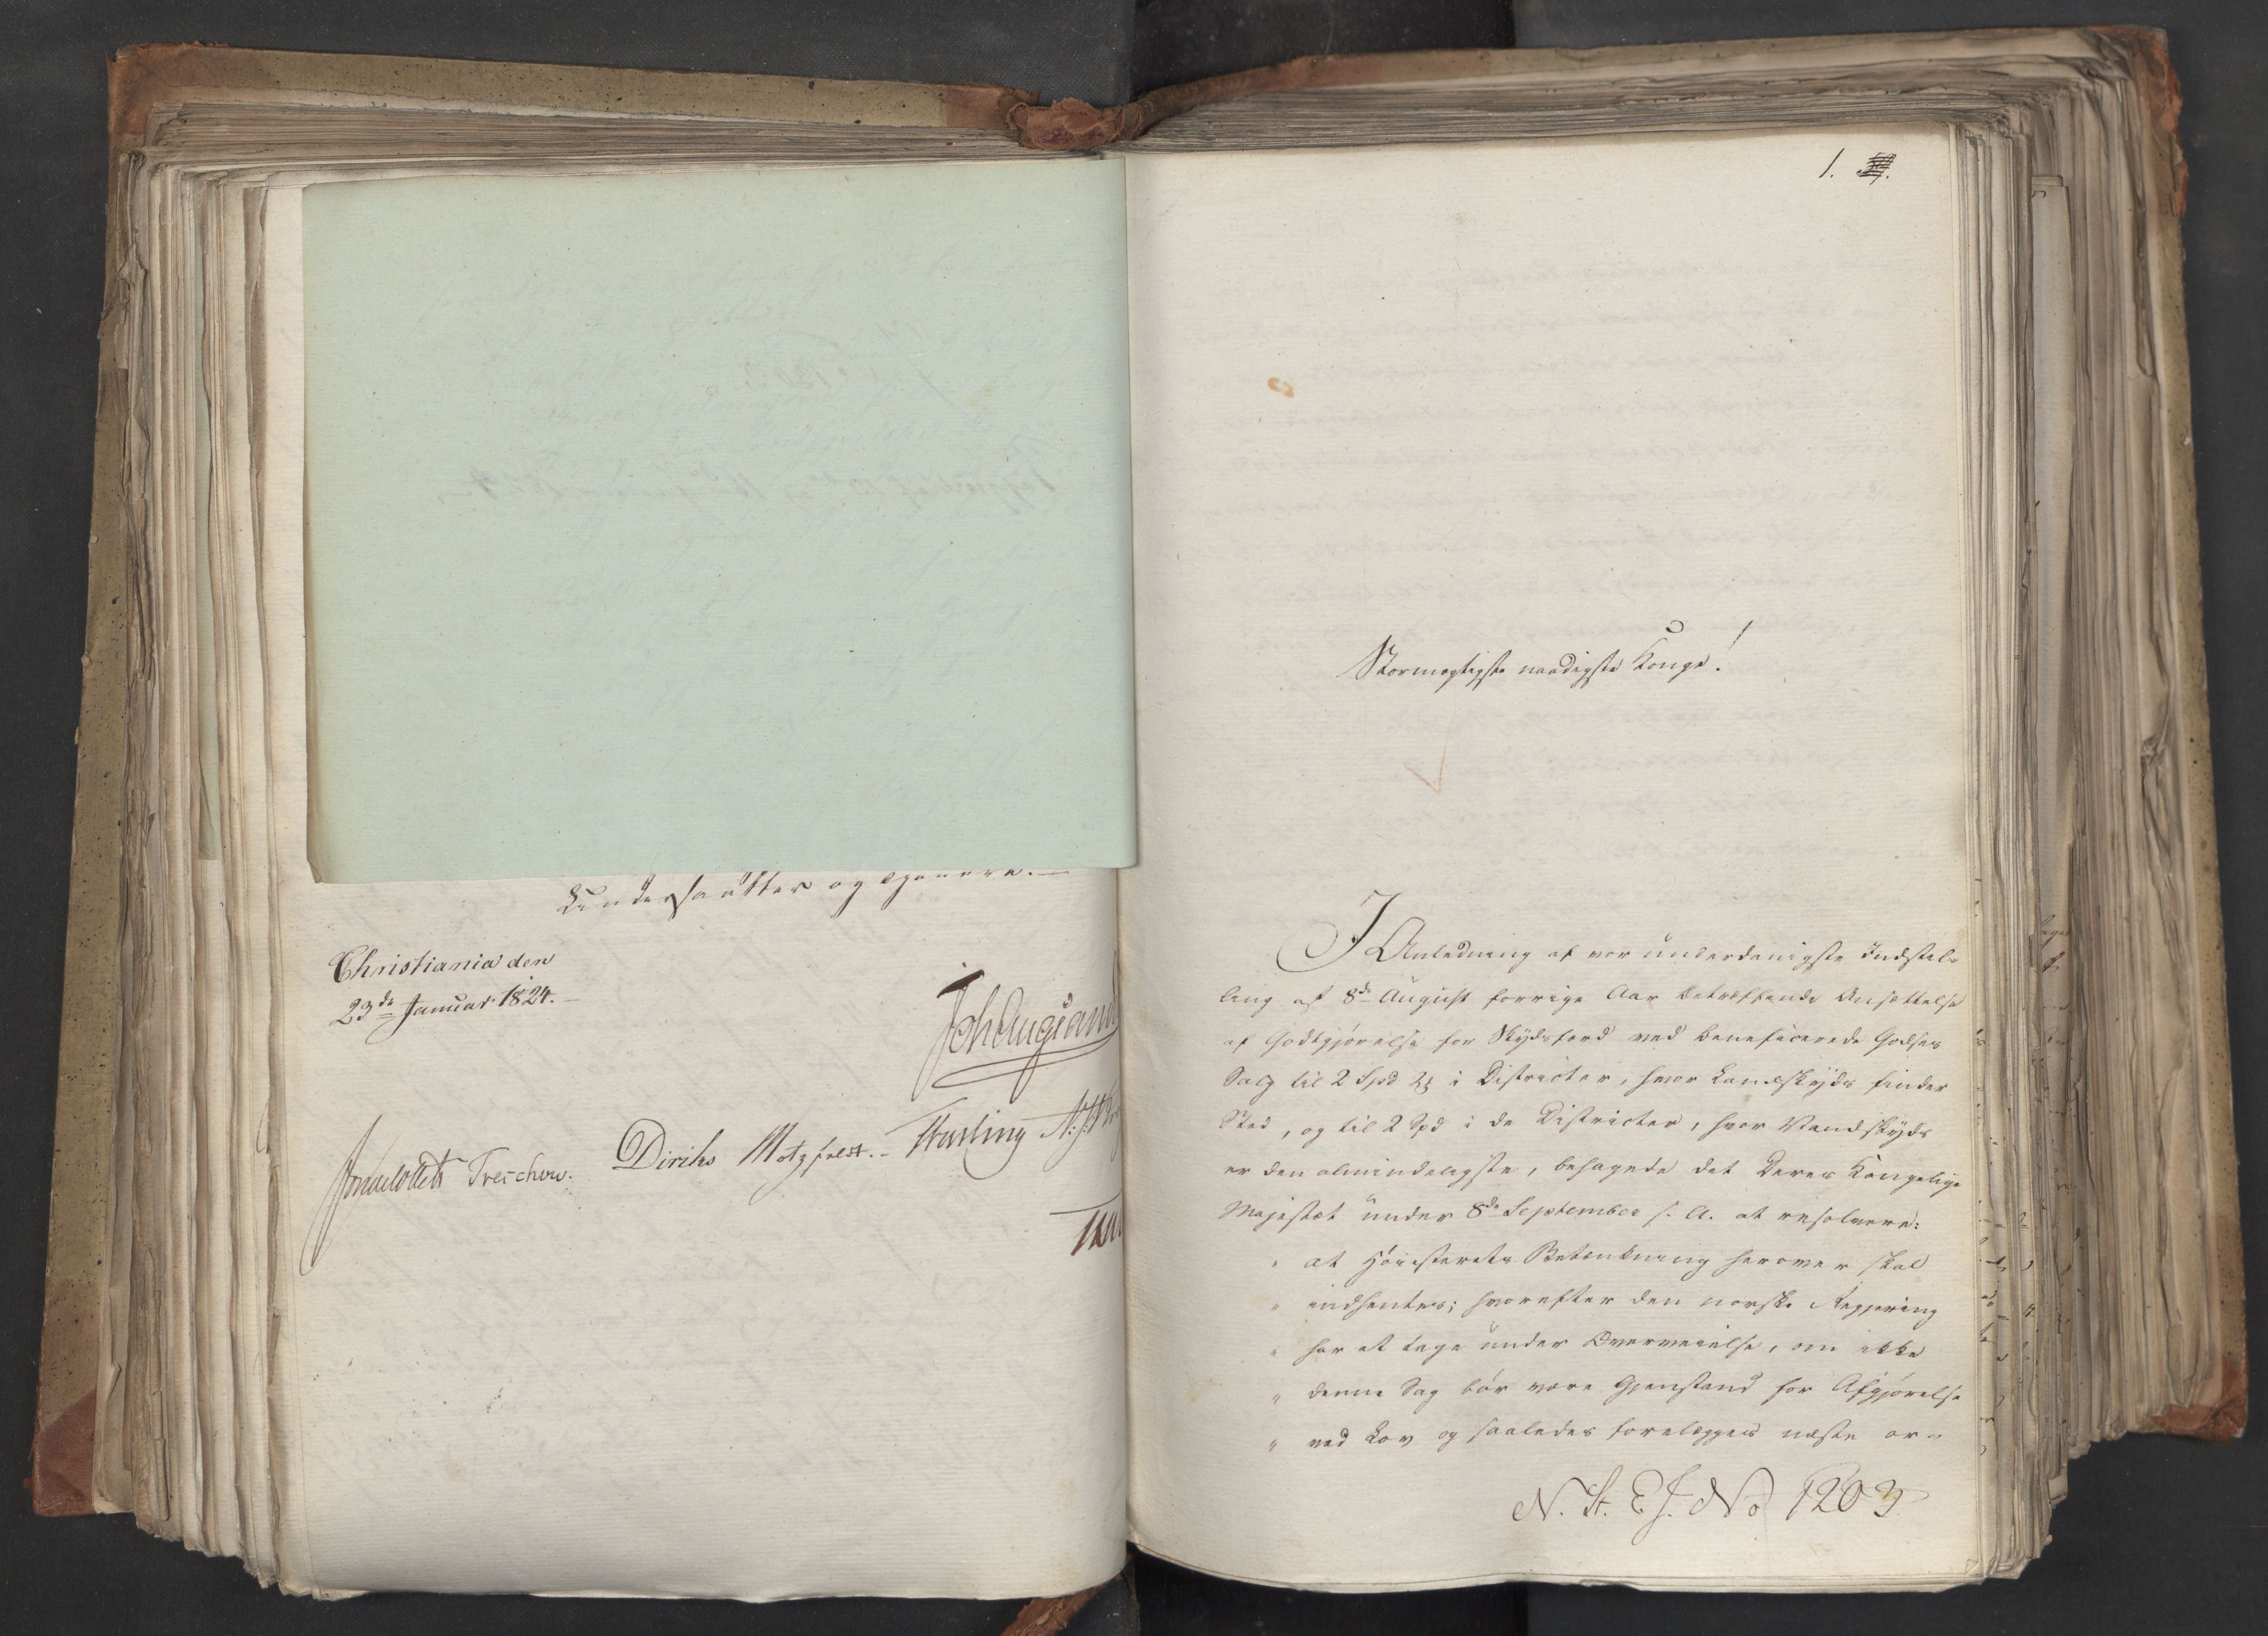 undersaatter og
Christiania den
23de Januar 1824.
Joh Aug Sand
Sommelhielm Treschow. Diriks Motzfeldt. Fasting
1. 
Stormægtigste naadigste Konge!
I Anledning af vor underdanigste Indstil-
ling af 8de August forrige Aar betræffende Ansættelse
af Godtgjørelse for Skydsfærd ved beneficerede Godses
Salg til 2 Spd 24 ß i Districter, hvor Landskyds finder
Sted, og til 2 Spd i de Districter, hvor Vandskyds
er den almindeligste, behagede det Deres Kongelige
Majestæt under 8de September s. A. at resolvere:
" at Høiesterets Betænkning herover skal
" indhentes; hvorefter den norske Regjering
" har at tage under Overveielse, om ikke
" denne Sag bør være Gjenstand for Afgjørelse
" ved Lov og saaledes forelægges næste or-
N. St. E. J. No 1203